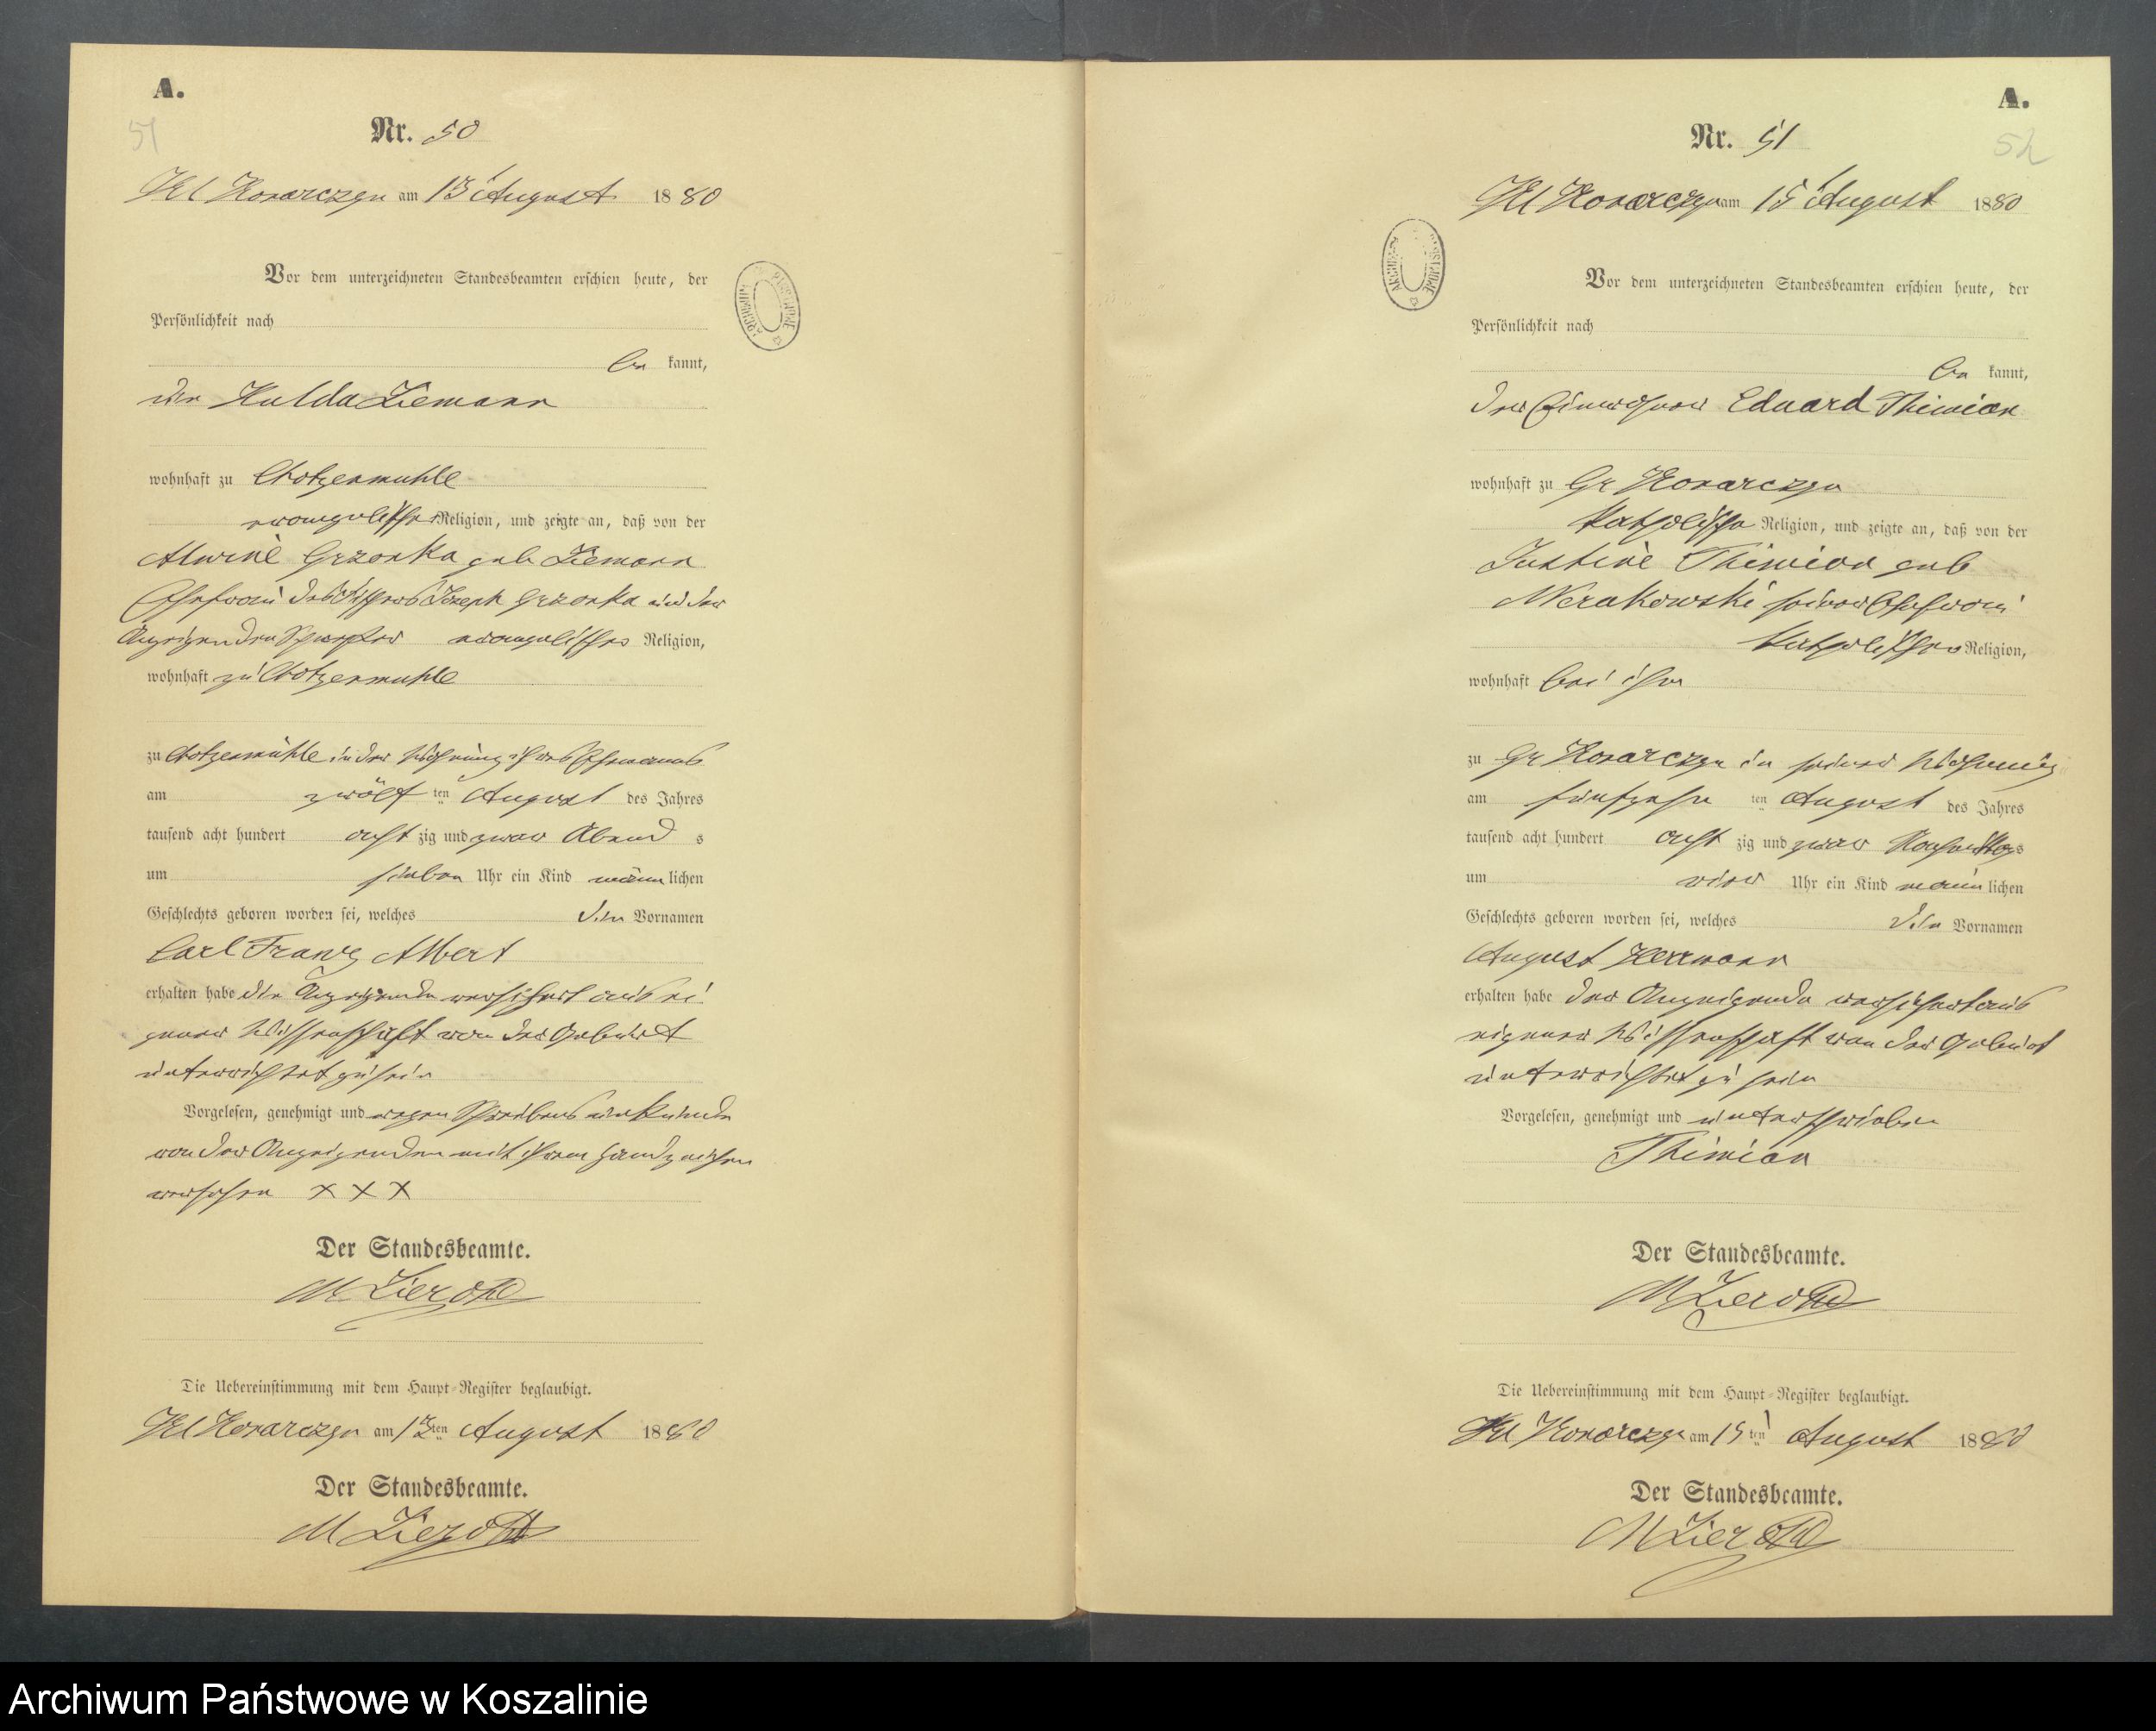 A.
51
Nr. 50
Kl Konarczyn am 13 August 1880
Vor dem unterzeichneten Standesbeamten erschien heute, der
Persönlichkeit nach
be kannt,
die Hulda Ziemann
wohnhaft zu Chotzenmühle
evangelischer Religion, und zeigte an, daß von der
Alwine Grzonka geb Ziemann
Ehefrau des Joseph Grzonka und der
Anzeigenden Schwester evangelischer Religion,
wohnhaft zu Chotzenmühle
zu Chotzenmühle in der Wohnung ihres Ehemanns
am zwölf ten August des Jahres
tausend acht hundert acht zig und zwar Abend s
um sieben Uhr ein Kind männlichen
Geschlechts geboren worden sei, welches den Vornamen
Carl Franz Albert
erhalten habe die Anzeigende versichert aus ei
gener Wissenschaft von der Geburt
unterrichtet zu sein
Vorgelesen, genehmigt und wegen Schreibens unkunde
von der Anzeigenden mit ihrem Handzeichen
versehen x x x
Der Standesbeamte.
M Zierold
Die Uebereinstimmung mit dem Haupt-Register beglaubigt.
Kl Konarczyn am 13ten August 1880
Der Standesbeamte.
M Zierold
A.
52
Nr. 51
Kl Konarczyn am 15 August 1880
Vor dem unterzeichneten Standesbeamten erschien heute, der
Persönlichkeit nach
be kannt,
der Einwohner Eduard Thimian
wohnhaft zu Gr Konarczyn
katholischer Religion, und zeigte an, daß von der
Justine Thimian geb
seiner Ehefrau
katholischer Religion,
wohnhaft bei ihm
zu Gr Konarczyn in seiner Wohnung
am fünfzehn ten August des Jahres
tausend acht hundert acht zig und zwar Nachmittags
um vier Uhr ein Kind männlichen
Geschlechts geboren worden sei, welches den Vornamen
August Herrmann
erhalten habe der Anzeigende versichert aus
eigener Wissenschaft von der Geburt
unterrichtet zu sein
Vorgelesen, genehmigt und unterschrieben
Thimian
Der Standesbeamte.
M Zierold
Die Uebereinstimmung mit dem Haupt-Register beglaubigt.
Kl Konarczyn am 15ten August 1880
Der Standesbeamte.
M Zierold
Archiwum Państwowe w Koszalinie